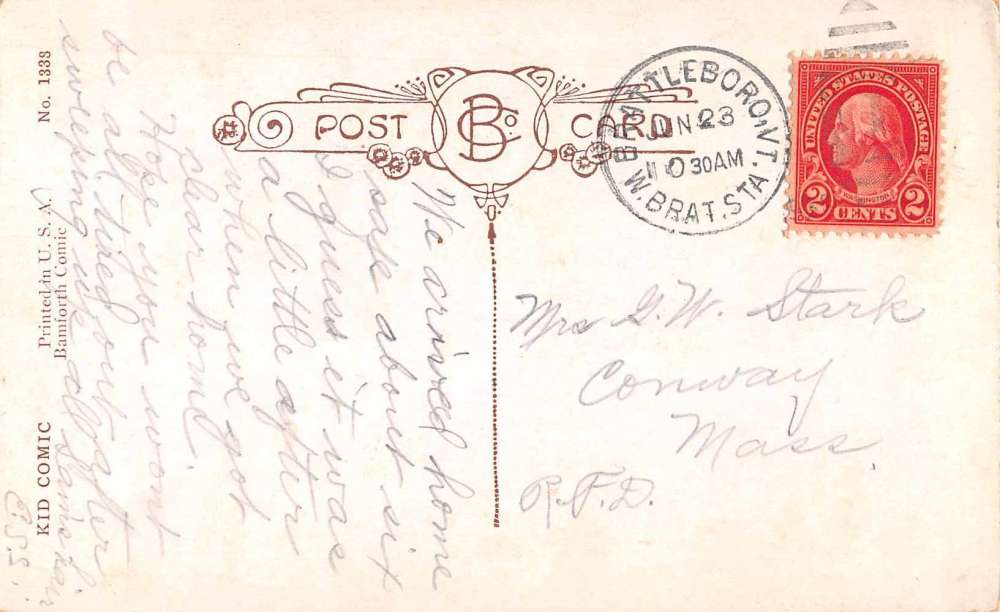 No. 1333
Printed in U. S. A.
Bamforth Comic
KID COMIC
POST CARD
BCo.
BRATTLEBORO, VT.
JUN 23
10 30AM
W. BRAT. STA.
UNITED STATES POSTAGE
WASHINGTON
2 CENTS 2
We arived home
safe about six
I guess it was
a little after
when we got
clear home.
Hope you wont
be all tired out after
sweeping up all
hair
E.S.S.
Mrs G. W. Stark
Conway
Mass.
R.F.D.